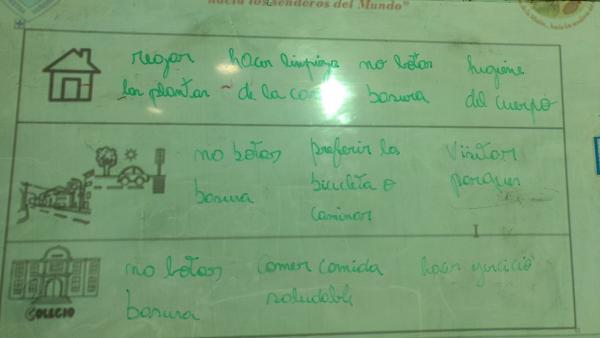 hacia los senderos del Mundo"
regar hacer limpieza no botar higiene
las plantas de la basura del cuerpo
no botar preferir la Visitar
basura bicicleta o parques
caminar
no botar comer comida hacer ejercicio
basura saludable
COLEGIO